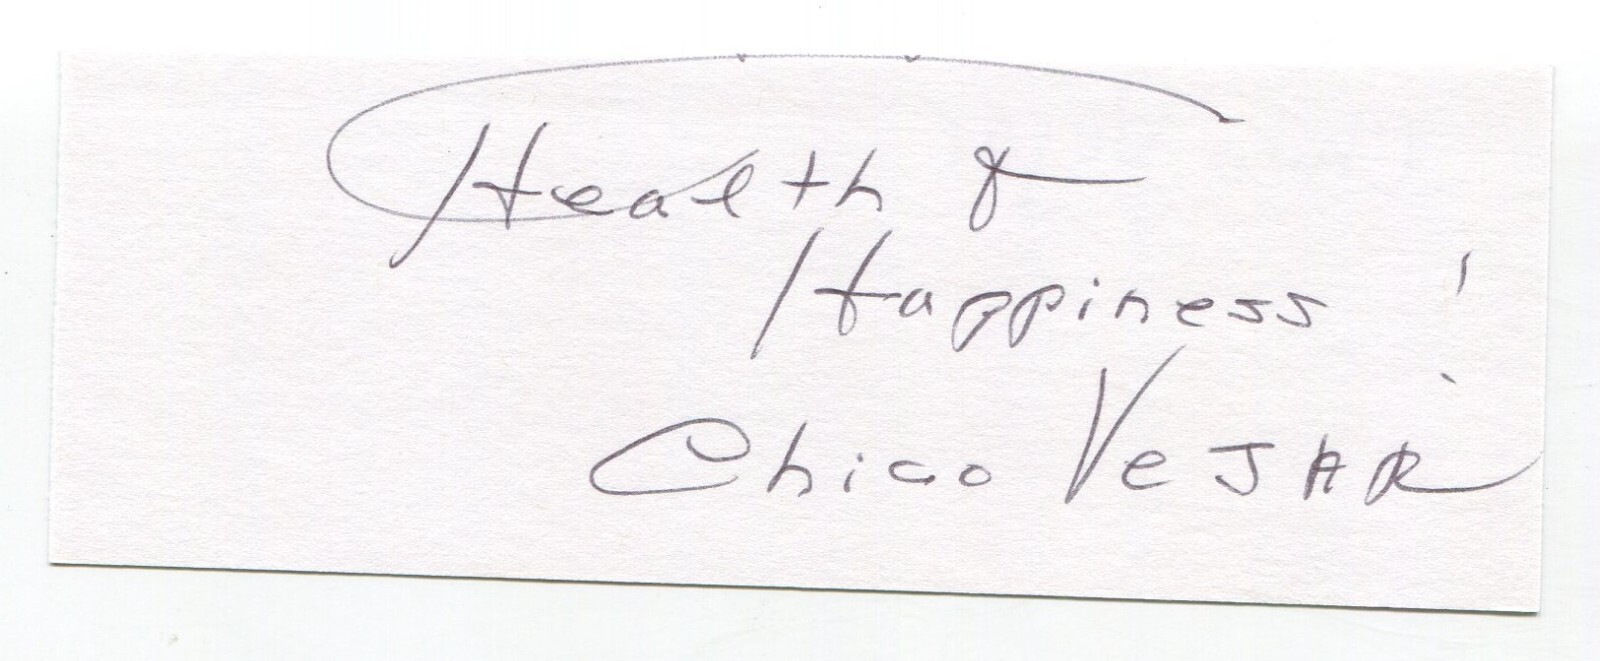 Health &
Happiness!
Chico VeJAR